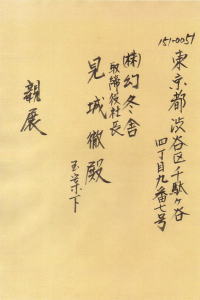 151-0051
東京都渋谷区千駄ヶ谷
四丁目九番七号
㈱幻冬舎
取締役社長
見城徹殿
玉案下
親展